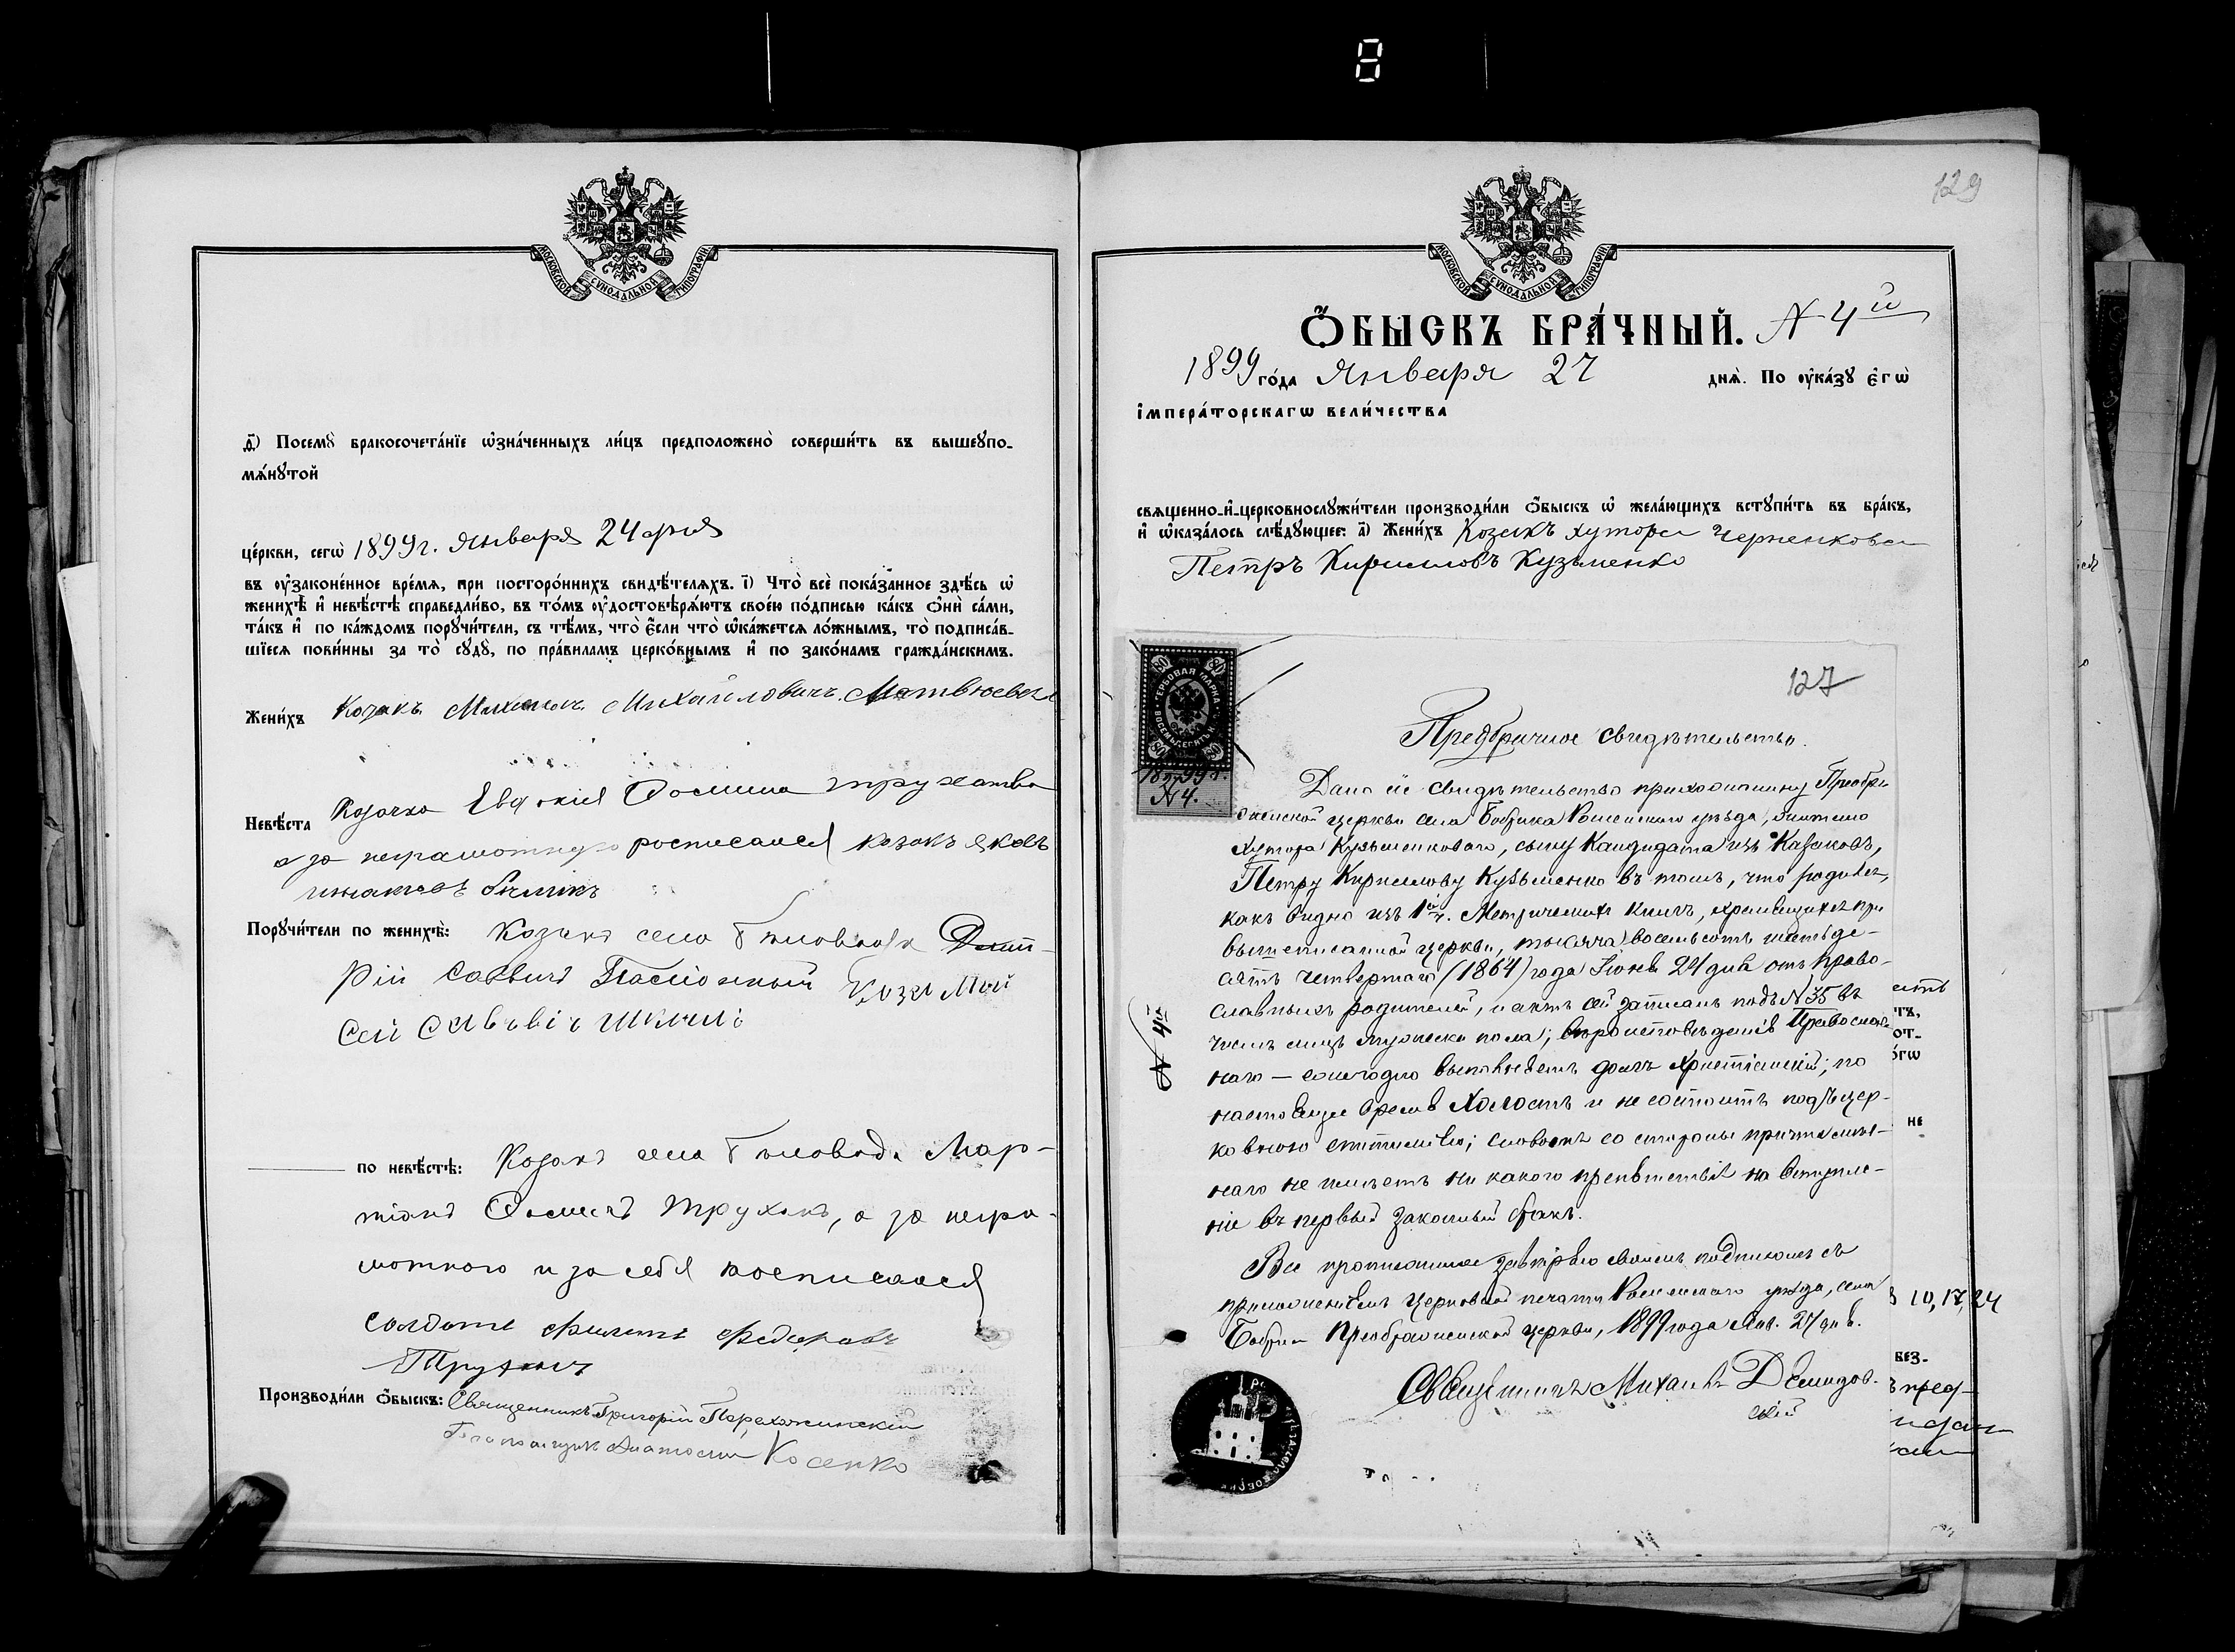 МОСКОВСКОЙ СѴНОДАЛЬНОЙ ТИПОГРАФІИ
д҃і) Посемꙋ̀ бракосочета́нїе ѡ҆зна́ченныхъ ли́цъ предположено̀ соверши́ть въ вышеꙋпо-
мѧ́нꙋтой
це́ркви, сегѡ̀ 1899 г. Января 24 дня
въ ᲂу҆законе́нное вре́мѧ, при посторо́ннихъ свидѣ́телѧхъ. і҃) Что̀ всѐ пока́занное здѣ́сь ѡ҆
женихѣ̀ и҆ невѣ́стѣ справедли́во, въ то́мъ ᲂу҆достовѣрѧ́ютъ свое́ю по́дписью ка́къ ѻ҆нѝ са́ми,
та́къ и҆ по ка́ждомъ порꙋчи́тели, съ тѣ́мъ, что̀ є҆́сли что̀ ѡ҆ка́жетсѧ ло́жнымъ, то̀ подписа́в-
шїесѧ пови́нны за то̀ сꙋдꙋ̀, по пра́виламъ церко́внымъ и҆ по зако́намъ гражда́нскимъ.
Жени́хъ Козакъ Михаилъ Михайловичъ
Невѣ́ста Козачка Евдокія Фомина
а за неграмотную росписался козакъ Яковъ
Порꙋчи́тели по женихѣ̀: Козакъ села
рій Саввичъ
по невѣ́стѣ: Козакъ села Мар-
тіанъ Фомичъ Труханъ, а за негра-
мотного и за себя росписался
солдатъ Филипъ Федоровъ
Труханъ
Производи́ли ѻ҆́быскъ: Священникъ Григорій
Косенко
129
МОСКОВСКОЙ СѴНОДАЛЬНОЙ ТИПОГРАФІИ
Ѻ҆́БЫСКЪ БРА́ЧНЫЙ. № 4й
1899 го́да Января 27 днѧ̀. По ᲂу҆ка́зꙋ є҆гѡ̀
і҆мпера́торскагѡ вели́чества
свѧщенно-и҆-церковнослꙋжи́тели производи́ли ѻ҆́быскъ ѡ҆ жела́ющихъ встꙋпи́ть въ бра́къ,
и҆ ѡ҆каза́лось слѣ́дꙋющее: а҃) Жени́хъ Козакъ хутора Черненкова
Петръ Кирилловъ Кузьменко
80 80
ГЕРБОВАЯ МАРКА
ВОСЕМЬДЕСЯТЪ К.
80 80
18 27/I 99 г.
№ 4.
127
Предбрачное свидѣтельство.
Дано сіе свидѣтельство прихожанину Преобра-
женской церкви села Бобрика Роменскаго уѣзда, жителю
хутора Кузьменкового, сыну Кандидата изъ Казаковъ,
Петру Кириллову Кузьменко въ томъ, что родился,
какъ видно изъ 1й ч. Метрическихъ книгъ, хранящихся при
вышеписанной церкви, тысяча восемьсотъ шестьде-
сятъ четвертаго (1864) года Іюня 24 дня отъ право-
славныхъ родителей, и актъ сей записанъ подъ № 35 въ
числѣ лицъ мужеска пола; вѣроисповѣданія Православ-
наго — ежегодно выполняетъ долгъ Христіанскій; по
настоящее время Холостъ и не состоитъ подъ цер-
ковною епитиміею; словомъ со стороны причта мѣст-
наго не имѣетъ ни какого препятствія на вступле-
ніе въ первый законный бракъ.
Все прописанное завѣряю своимъ подписомъ съ
приложеніемъ церковной печати Роменскаго уѣзда, села
Бобрика Преобраше­нской церкви, 1899 года Янв. 27 дня.
Священникъ Михаилъ Демидов-
скій
№ 4й
тъ,
от-
ѻгѡ
не
10, 17, 24
без-